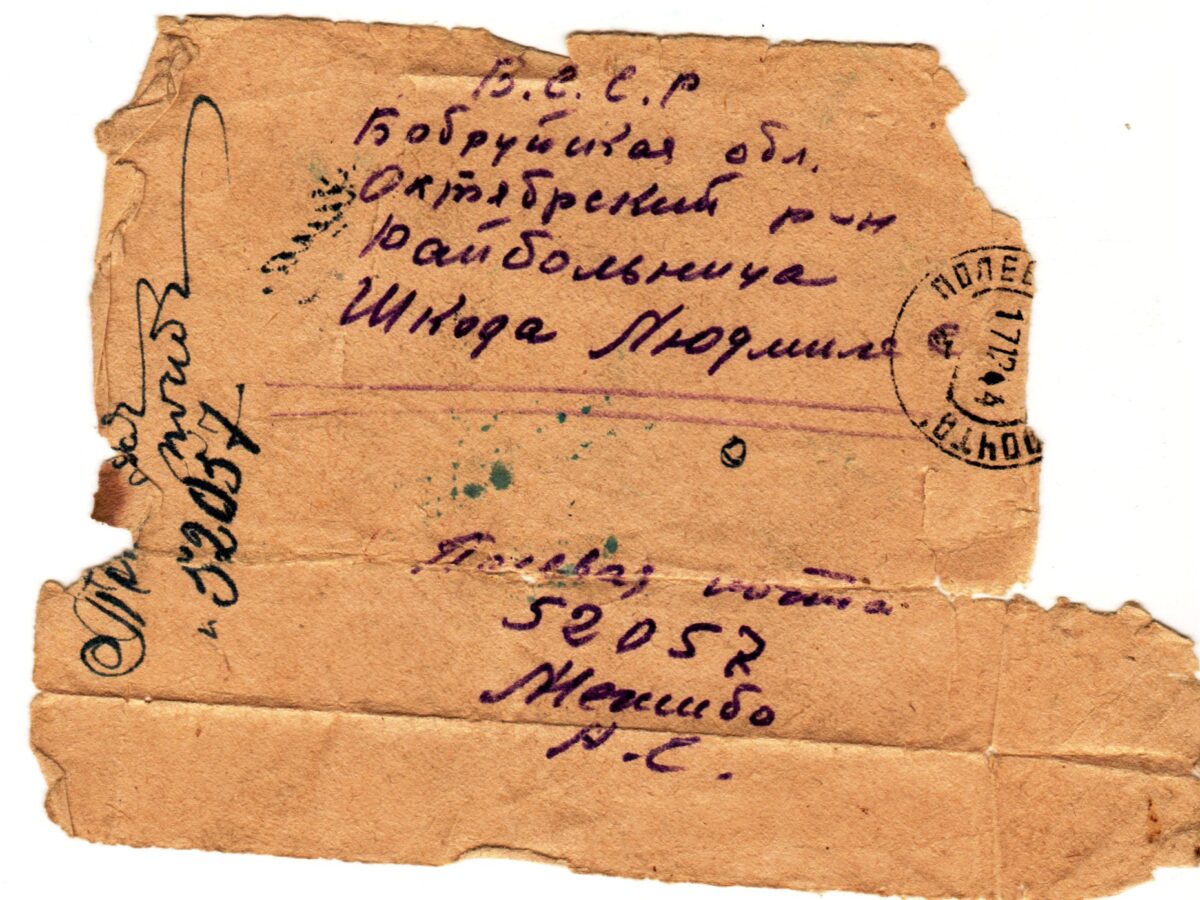 Б.С.С.Р
Бобруйская обл.
Октябрский р-н
Райбольница
Шкода Людмиле
ПОЛЕВ
17 12 44
ПОЧТА
Полевая почта
52057
А.С.
52057